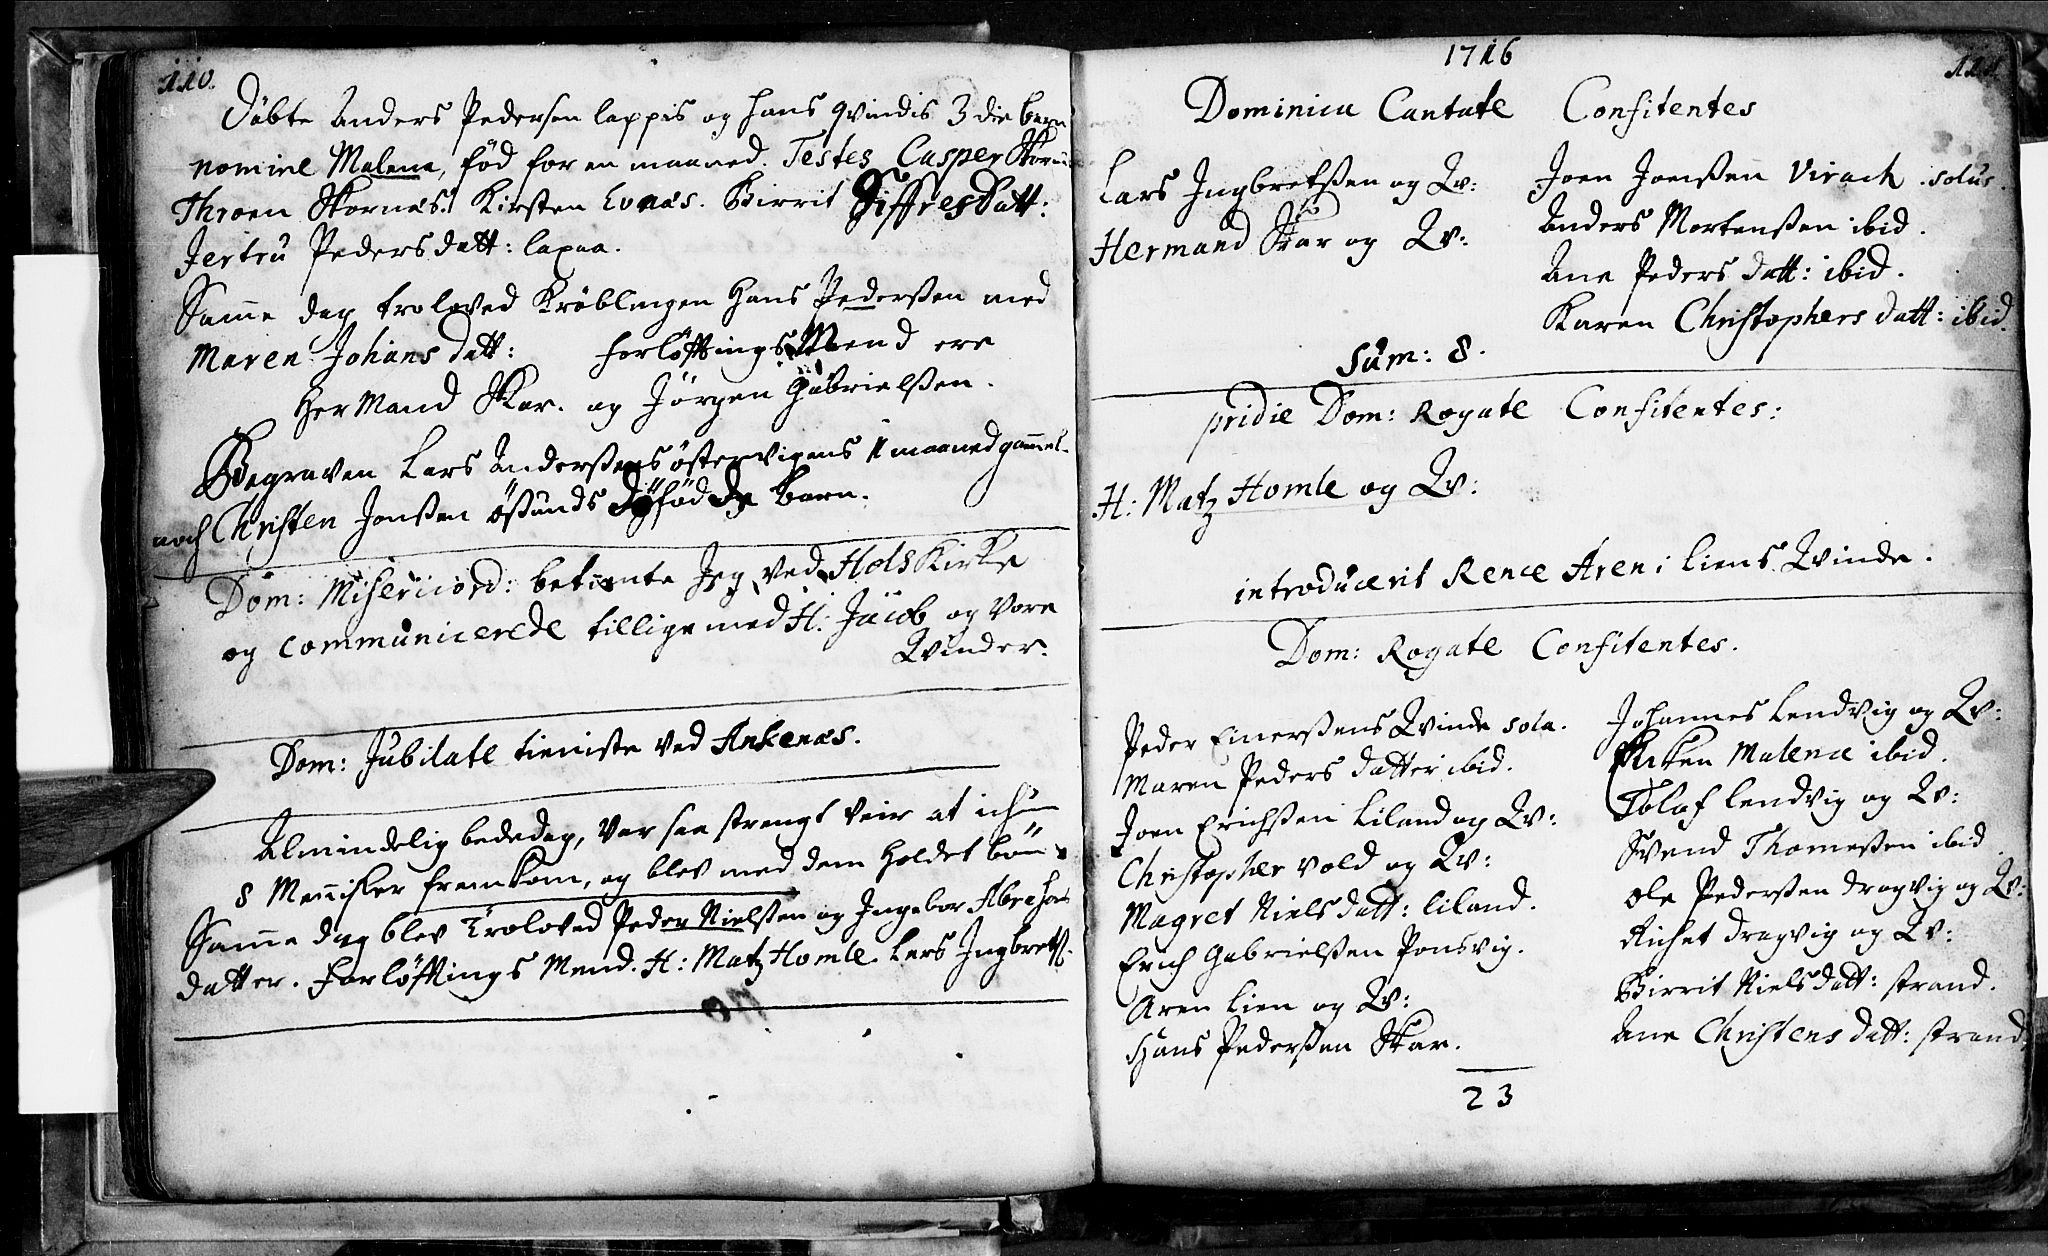 110.
Döbte Anders Pedersen lappis og hans qvindis 3 die barn
nomine Malena, föd for en maaned. Testes Casper
Throen Skornæs. Kirsten Evnæs. Birrit Siffresdatt:
Jertru Pedersdatt: lapaa.
Samme dag troloved Kröblingen Hans Pederßen med
Maren Johans datt: forlöfftings Mend ere
HerMand Skar. og Jörgen Gabrielßen.
Begraven Lars Anderßens östervigens 1 maaned gammel
noch Christen Jonßen ößunds dödfödde barn.
Dom: Misericord: betiente Jeg ved Hols Kirke
og communicerede tillige med H: Jacob og vore
Qvinder.
Dom: Jubilate tieniste ved Ankenæs.
Almindelig bededag, var saa strengt veir at ichun
8 Menisker fremkom, og blev med dem holdet bön
Samme dag blev Troloved Peder Nielßen og Ingebor Abraham
datter. Forlöfftings Mend. H: Matz Homle. Lars Ingbretß.
1716
111.
Dominica Cantate Confitentes
Lars Ingbretßen og Qv:
Hermand Skar og Qv:
Joen Jonßen Virack. solus.
Anders Mortenßen ibid.
Ane Peders datt: ibid.
Karen Christophers datt: ibid.
Sum: 8.
pridie Dom: Rogate Confitentes:
H: Matz Homle og Qv:
introducerit Rence Aren i liens Qvinde.
Dom: Rogate Confitentes.
Peder Einerßens Qvinde sola.
Maren Peders datter ibid.
Joen Erichßen Liland og Qv:
Christopher vold og Qv:
Magret Niels datt: liland.
Erich Gabrielßen Ponsvig.
Aren Lien og Qv:
Hans Pederßen Skar.
Johannes Lendvig og Qv:
Malena ibid.
Tolaf lendvig og Qv:
Svend Thomeßen ibid.
Ole Pederßen dragvig og Qv:
Richet dragvig og Qv:
Birrit Niels datt: strand.
Ane Christens datt: strand.
23